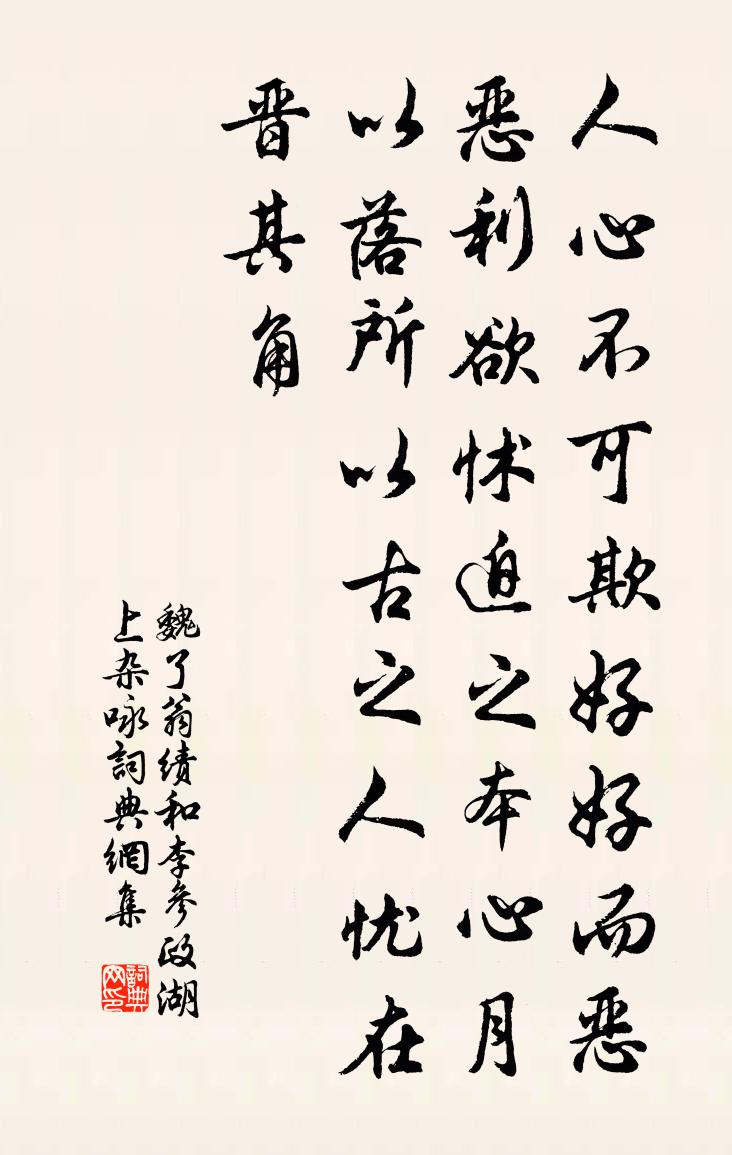 人心不可欺好好而恶
恶利欲怵迫之本心月
以落所以古之人忧在
晋其角
魏了翁績和李參政湖
上杂咏詞典網集
詞典网印